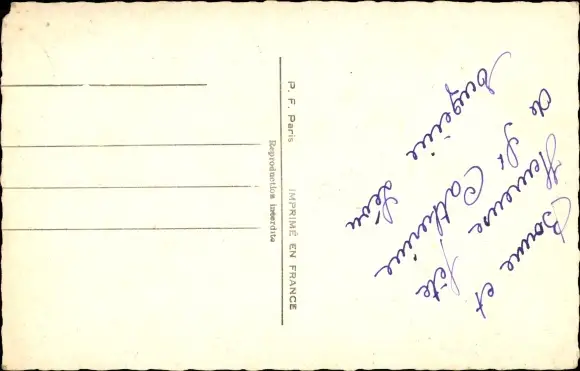 Bonne et
Heureuse fête
de St Catherine
Eugénie
P. F. Paris IMPRIMÉ EN FRANCE
Reproduction interdite